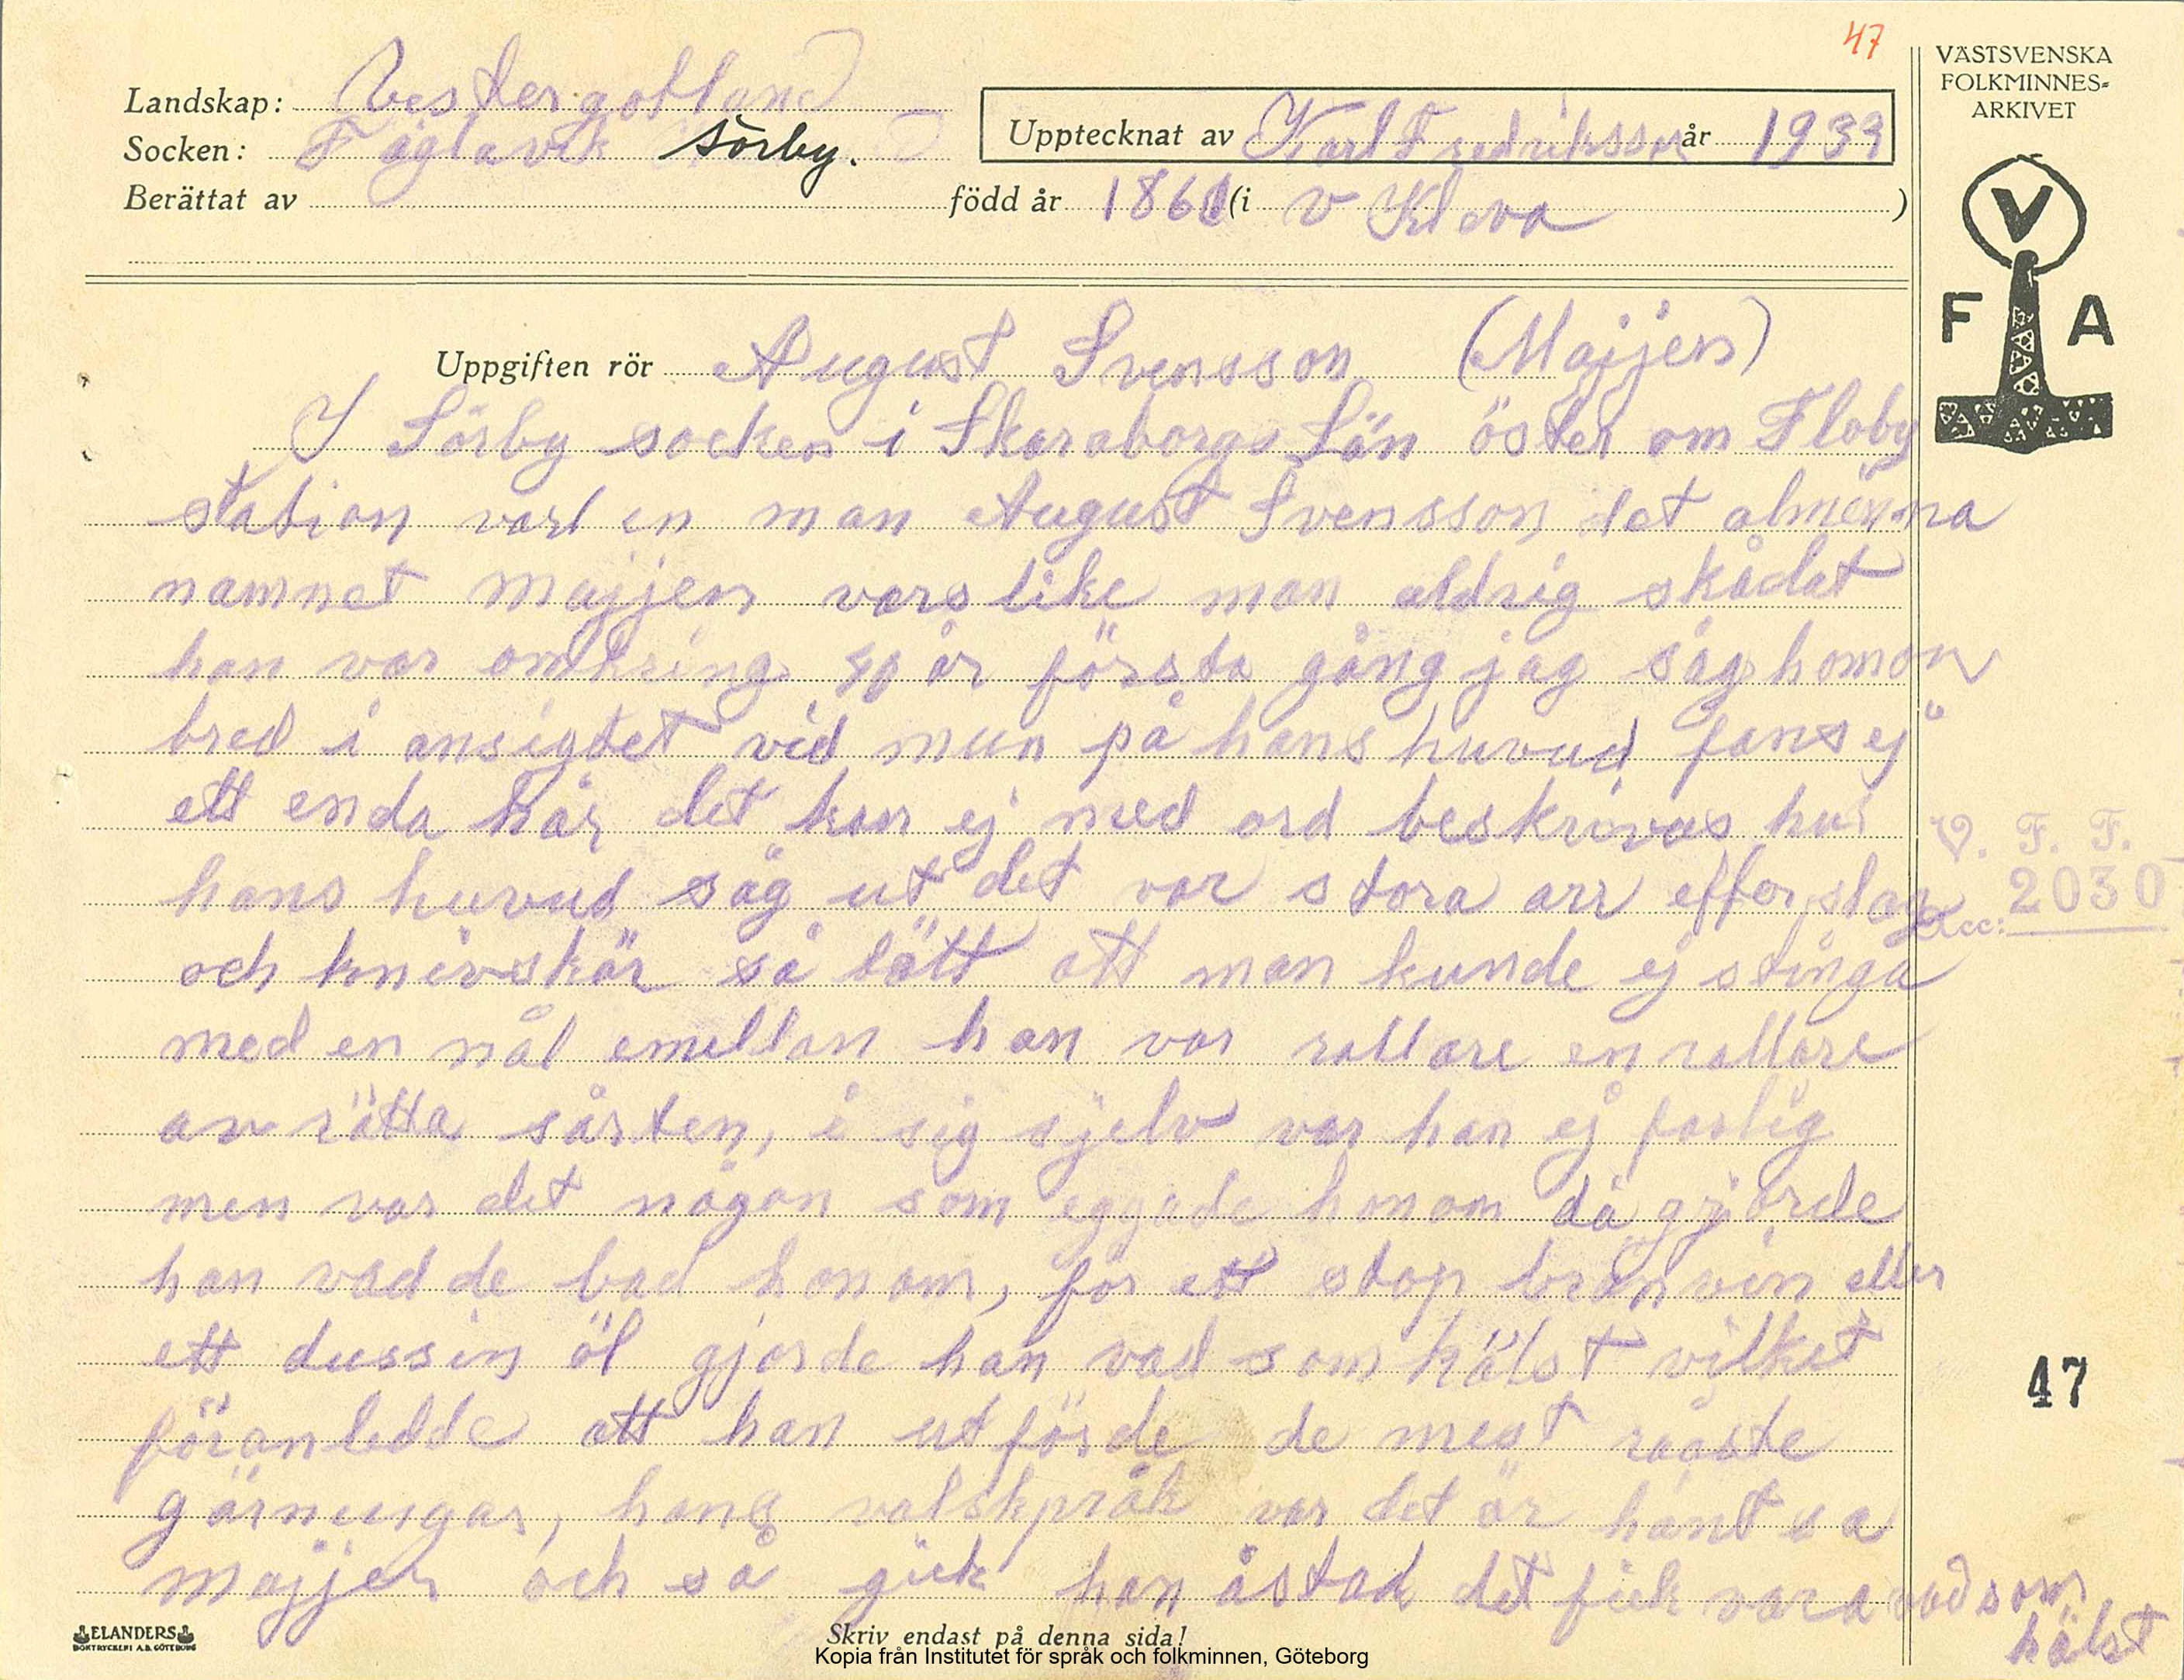 47
VÄSTSVENSKA
FOLKMINNES-
ARKIVET
Landskap: Vestergötland
Socken: Fåglavik Sörby.
Upptecknat av Karl Fredriksson år 1933
Berättat av född år 1861 (i v Kleva )
V
F A
Uppgiften rör August Svensson (Majjen)
I Sörby socken i Skaraborgs Län öster om Floby
station vart en man August Svensson det almänna
namnet Majjen vars like man aldrig skådat
han var omkring 40 år första gång jag såg homon
bred i ansigtet vid mun på hans huvud fans ej
ett enda hår det kan ej med ord beskrivas hur
hans huvud såg ut det var stora arr efter slag
och knivskär så tätt att man kunde ej stinga
med en nål emellan han var rallare en rallare
av rätta sårten, i sig sjelv var han ej farlig
men var det någon som eggade honom då gjorde
han vad de bad honom, för ett stop bränvin eller
ett dussin öl gjorde han vad som hälst vilket
föranledde att han utförde de mest råaste
gärningar, hans valskpråk var det är hänt sa
majjen och så gick han åstad det fick vara vad som
hälst
V. F. F.
Acc: 2030
47
ELANDERS
BOKTRYCKERI A.B. GÖTEBORG
Skriv endast på denna sida!
Kopia från Institutet för språk och folkminnen, Göteborg